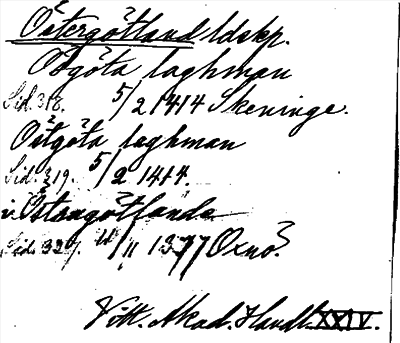 Östergötland ldskp.
Osgöta laghman
Sid. 318. 5/2 1414 Skeninge.
Östgöta laghman
Sid. 319. 5/2 1414.
i Östragötlanda
Sid. 327. 11/11 1377 Oxnö.
Vitt. Akad. Handl. XXIV.